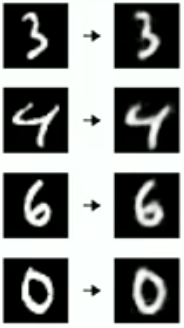 3 → 3
4 → 4
6 → 6
0 → 0